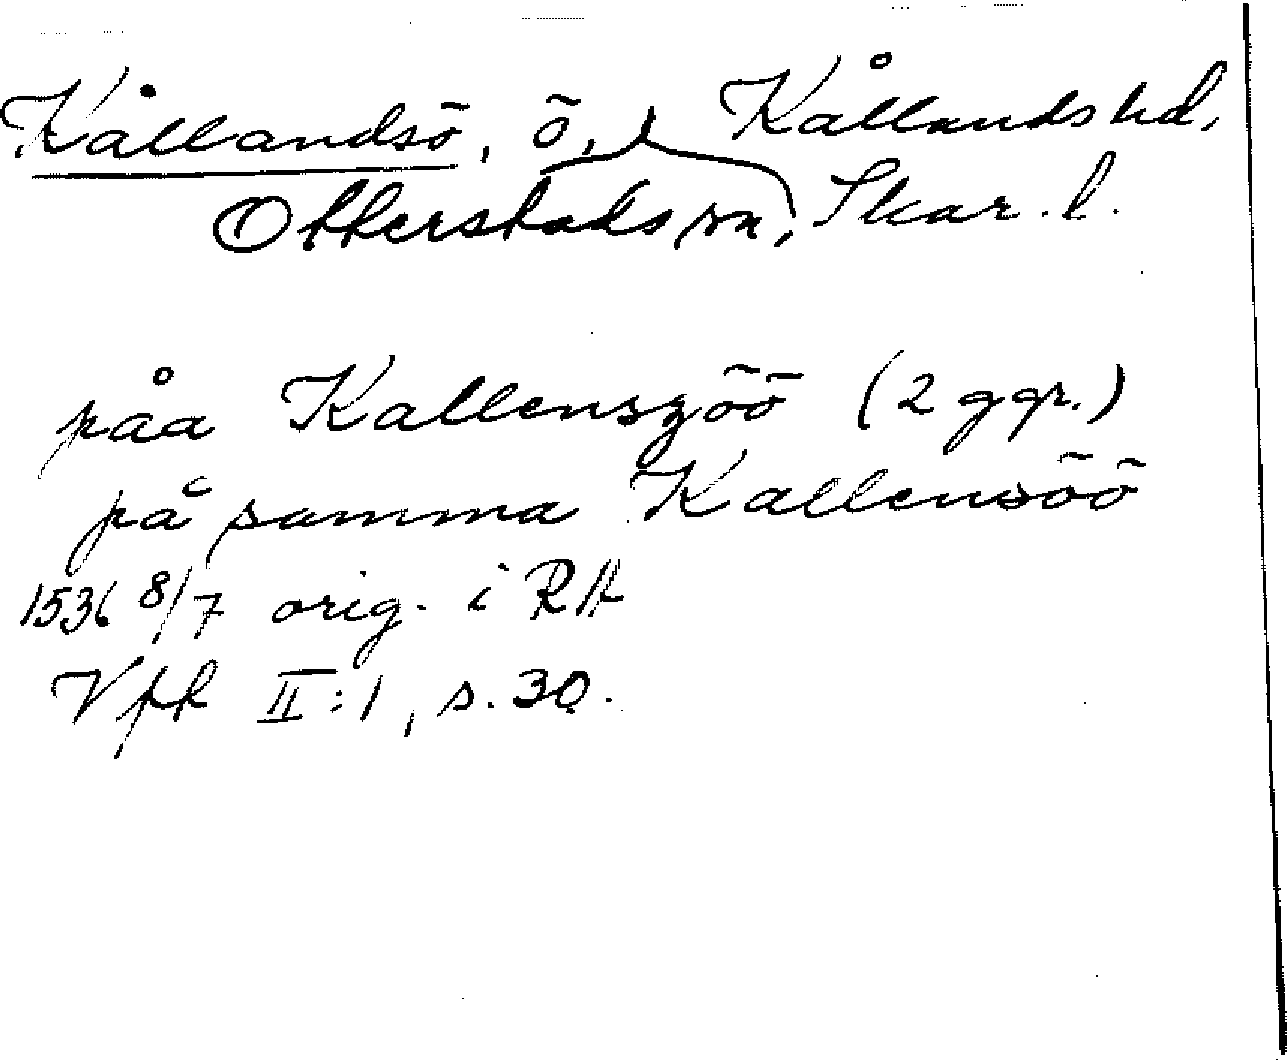 Kållandsö, ö, Kållands hd,
Otterstads sn, Skar. l.
påa Kallenszöö (2 ggr.)
på samma Kallensöö
1536 8/7 orig. i RA
Vfk II:1, s. 30.